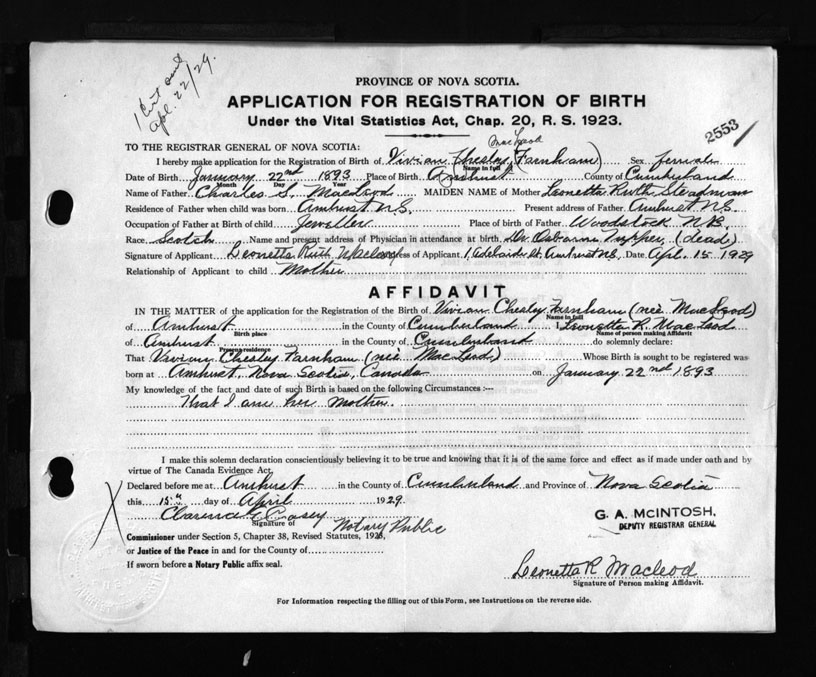 1 Cert sent
Apl. 22/29.
PROVINCE OF NOVA SCOTIA.
APPLICATION FOR REGISTRATION OF BIRTH
Under the Vital Statistics Act, Chap. 20, R. S. 1923.
2553
TO THE REGISTRAR GENERAL OF NOVA SCOTIA:
MacLeod
I hereby make application for the Registration of Birth of Vivian Chesley (Farnham) Sex female
Name in full
Date of Birth January 22nd 1893 Place of Birth Amherst County of Cumberland
Month Day Year
Name of Father Charles S. MacLeod MAIDEN NAME of Mother Leonetta Ruth Steadman
Residence of Father when child was born Amherst N.S. Present address of Father Amherst N.S.
Occupation of Father at Birth of child Jeweller Place of birth of Father Woodstock N.B.
Race Scotch Name and present address of Physician in attendance at birth Dr Osborne Tupper (dead)
Signature of Applicant Leonetta Ruth Macleod Address of Applicant 1 Adelaide St. Amherst N.S. Date Apl. 15 1929
Relationship of Applicant to child Mother
AFFIDAVIT
IN THE MATTER of the application for the Registration of the Birth of Vivian Chesley Farnham (neé MacLeod)
Name in full
of Amherst in the County of Cumberland I Leonetta R. MacLeod
Birth place Name of person making Affidavit
of Amherst in the County of Cumberland do solemnly declare:
Present residence
That Vivian Chesley Farnham (neé MacLeod) Whose Birth is sought to be registered was
born at Amherst Nova Scotia, Canada on January 22nd 1893
My knowledge of the fact and date of such Birth is based on the following Circumstances :—
That I am her Mother.
I make this solemn declaration conscientiously believing it to be true and knowing that it is of the same force and effect as if made under oath and by
virtue of The Canada Evidence Act.
Declared before me at Amherst in the County of Cumberland and Province of Nova Scotia
this 15th day of April 1929.
Clarence E. Casey
Signature of Notary Public
G. A. McINTOSH,
DEPUTY REGISTRAR GENERAL
Commissioner under Section 5, Chapter 38, Revised Statutes, 1923,
or Justice of the Peace in and for the County of
If sworn before a Notary Public affix seal.
Leonetta R Macleod
Signature of Person making Affidavit.
For Information respecting the filling out of this Form, see Instructions on the reverse side.